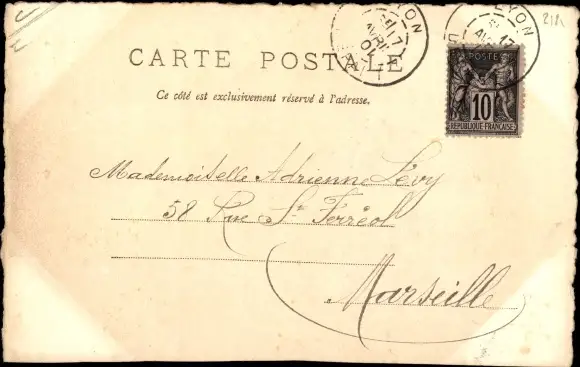 LYON
17
AVRIL
01
LYON
17
21h
POSTE
10
RÉPUBLIQUE FRANÇAISE
CARTE POSTALE
Ce côté est exclusivement réservé à l'adresse.
Mademoiselle Adrienne Lévy
58 Rue St Ferréol
Marseille